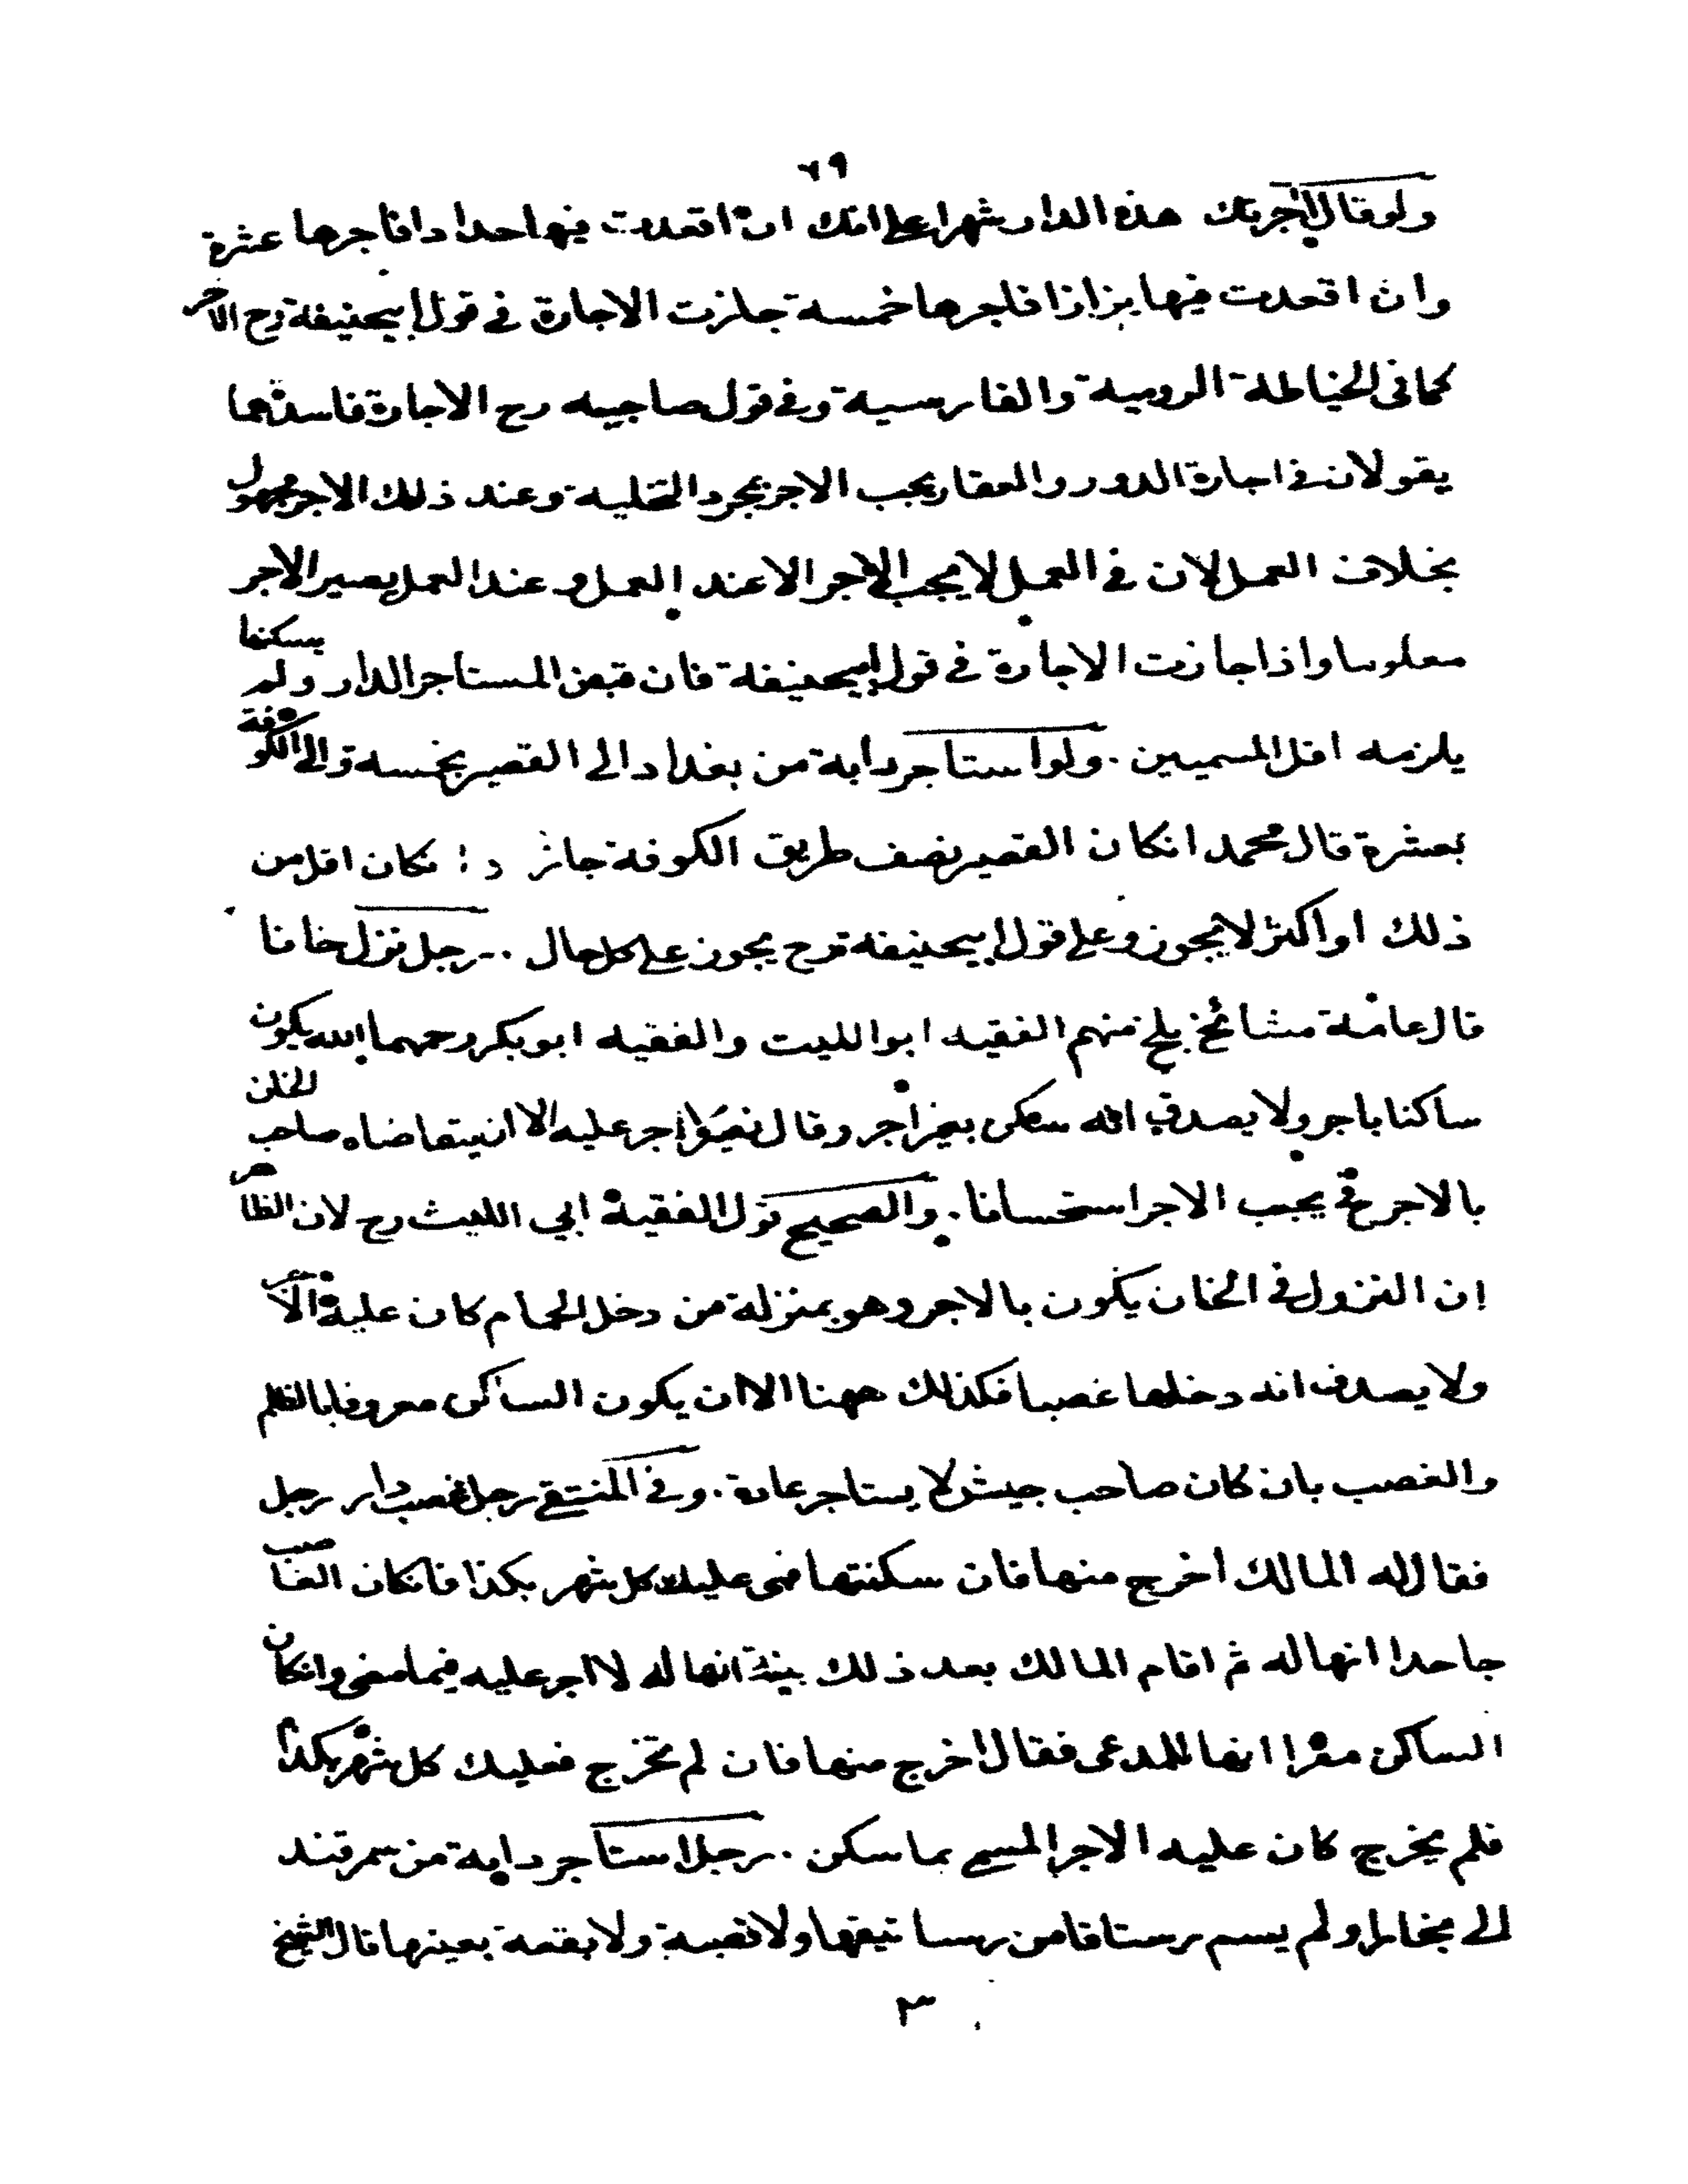 ٦٩
ولو قال اجرتك هذه الدار شهرا على انك ان اقعدت فيها حدادا فاجرها عشرة
وان اقعدت فيها بزازا فاجرها خمسة جازت الاجارة في قول ابيحنيفة رح الاخر
كما في الخياطة الرومية والفارسية وفي قول صاحبيه رح الاجارة فاسدة هما
يقولان في اجارة الدور والعقار يجب الاجر بمجرد التخلية وعند ذلك الاجر مجهول
بخلاف العمل لان في العمل لا يجب الاجر الا عند العمل وعند العمل يصير الاجر
معلوما واذا جازت الاجارة في قول ابيحنيفة فان قبض المستاجر الدار ولم يسكنها
يلزمه اقل المسميين . ولو استاجر دابة من بغداد الى القصير بخمسة والى الكوفة
بعشرة قال محمد انكان القصير نصف طريق الكوفة جاز و انكان اقل من
ذلك او اكثر لا يجوز وعلى قول ابيحنيفة رح يجوز على كل حال . رجل نزل خانا
قال عامة مشائخ بلخ منهم الفقيه ابو الليث والفقيه ابو بكر رحمهما الله يكون
ساكنا باجر ولا يصدق انه سكن بغير اجر وقال نصير لا اجر عليه الا ان يتقاضاه صاحب الخان
بالاجر فح يجب الاجر استحسانا . والصحيح قول الفقيه ابي الليث رح لان الظاهر
ان النزول في الخان يكون بالاجر وهو بمنزلة من دخل الحمام كان عليه الاجر
ولا يصدق انه دخلها غصبا فكذلك ههنا الا ان يكون الساكن معروفا بالظلم
والغصب بان كان صاحب جيش لا يستاجر عادة . وفي المنتقى رجل غصب دار رجل
فقال له المالك اخرج منها فان سكنتها فهى عليك كل شهر بكذا فانكان الغاصب
جاحدا انها له ثم اقام المالك بعد ذلك بينة انها له لا اجر عليه فيما مضى وانكان
الساكن مقرا انها للمدعى فقال اخرج منها فان لم تخرج فعليك كل شهر بكذا
فلم يخرج كان عليه الاجر المسمى بما سكن . رجل استاجر دابة من سمرقند
الى بخارا ولم يسم رستاقا من رساتيقها ولا قصبة ولا بقعة بعينها قال الشيخ
٣